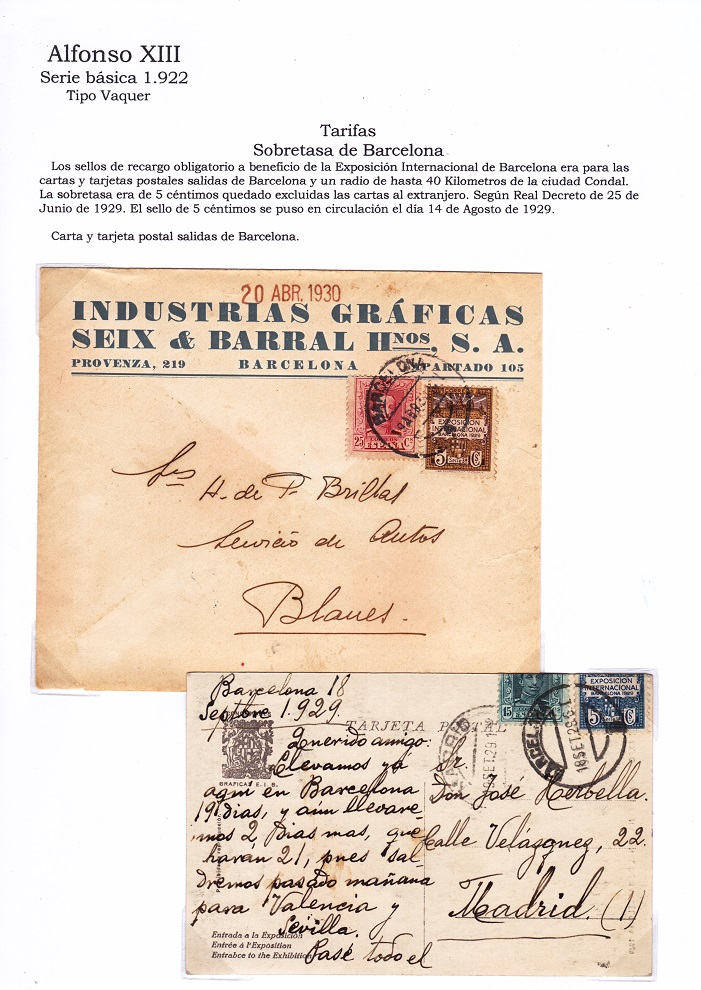 Alfonso XIII
Serie básica 1.922
Tipo Vaquer
Tarifas
Sobretasa de Barcelona
Los sellos de recargo obligatorio a beneficio de la Exposición Internacional de Barcelona era para las
cartas y tarjetas postales salidas de Barcelona y un radio de hasta 40 Kilometros de la ciudad Condal.
La sobretasa era de 5 céntimos quedado excluidas las cartas al extranjero. Según Real Decreto de 25 de
Junio de 1929. El sello de 5 céntimos se puso en circulación el día 14 de Agosto de 1929.
Carta y tarjeta postal salidas de Barcelona.
20 ABR. 1930
INDUSTRIAS GRÁFICAS
SEIX & BARRAL HNOS, S. A.
PROVENZA, 219 BARCELONA APARTADO 105
BARCELONA
25 Cs
EXPOSICION
INTERNACIONAL
BARCELONA 1929
5 C
Sres
H. de P. Brillas
Servicio de Autos
Blanes.
Barcelona 18
Septbre 1.929.
TARJETA POSTAL
15
EXPOSICION
INTERNACIONAL
BARCELONA 1929
5 C
BARCELONA
18 SET. 29
MADRID
SET. 29
GRAFICAS E. I. B.
Querido amigo:
Llevamos ya
aquí en Barcelona
19 dias, y aún llevare-
mos 2 dias mas, que
haran 21, pues sal-
dremos pasado mañana
para Valencia y
Sevilla.
Pasé todo el
Sr.
Don José Herbella.
Calle Velázquez, 22.
Madrid. (1)
Entrada a la Exposición
Entrée á l'Exposition
Entrabce to the Exhibition